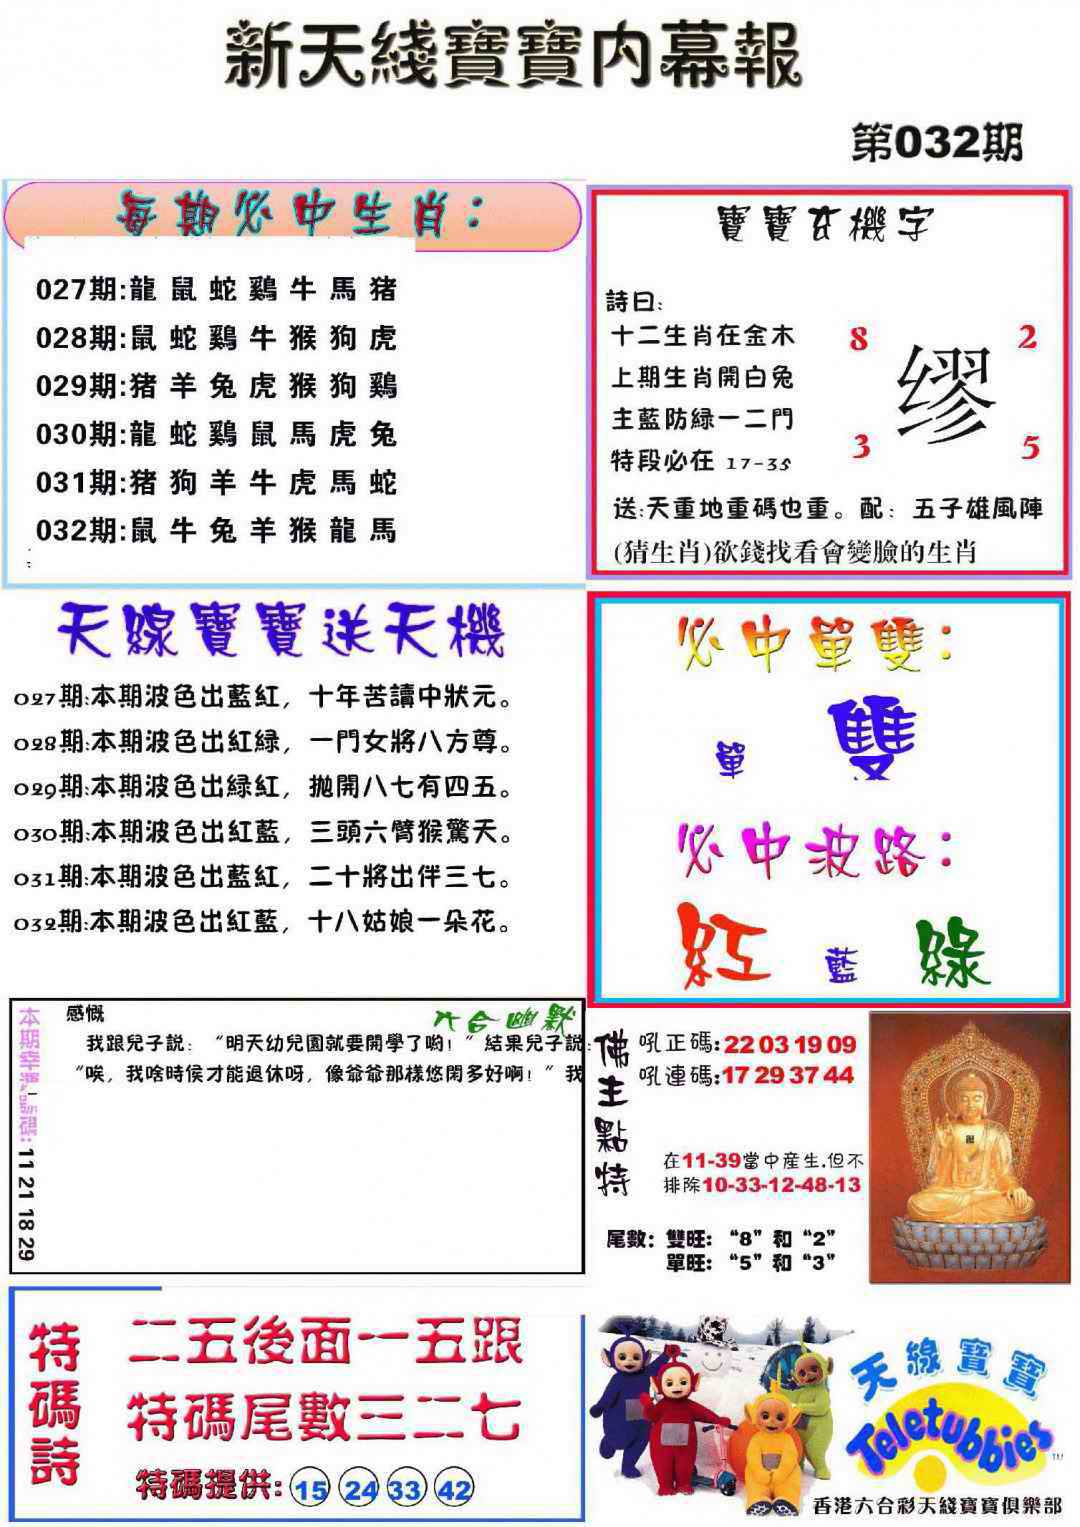 新天綫寶寶内幕報
第032期
每期必中生肖:
027期:龍鼠蛇鷄牛馬猪
028期:鼠蛇鷄牛猴狗虎
029期:猪羊兔虎猴狗鷄
030期:龍蛇鷄鼠馬虎兔
031期:猪狗羊牛虎馬蛇
032期:鼠牛兔羊猴龍馬
寶寶玄機字
詩曰:
十二生肖在金木
上期生肖開白兔
主藍防緑一二門
特段必在 17-35
8 2
缪
3 5
送:天重地重碼也重。配：五子雄風陣
(猜生肖)欲錢找看會變臉的生肖
天線寶寶送天機
027期:本期波色出藍紅，十年苦讀中狀元。
028期:本期波色出紅緑，一門女將八方尊。
029期:本期波色出緑紅，抛開八七有四五。
030期:本期波色出紅藍，三頭六臂猴驚天。
031期:本期波色出藍紅，二十將出伴三七。
032期:本期波色出紅藍，十八姑娘一朵花。
必中單雙:
單 雙
必中波路:
紅 藍 綠
本期幸運號碼: 11 21 18 29
六合幽默
感慨
我跟兒子説：“明天幼兒園就要開學了喲！”結果兒子説:
“唉，我啥時侯才能退休呀，像爺爺那樣悠閑多好啊！”我
佛主點特
吼正碼:22 03 19 09
吼連碼:17 29 37 44
在11-39當中産生.但不
排除10-33-12-48-13
尾數：雙旺：“8”和“2”
單旺：“5”和“3”
特碼詩
二五後面一五跟
特碼尾數三二七
特碼提供: 15 24 33 42
天線寶寶
Teletubbies
TM
香港六合彩天綫寶寶俱樂部